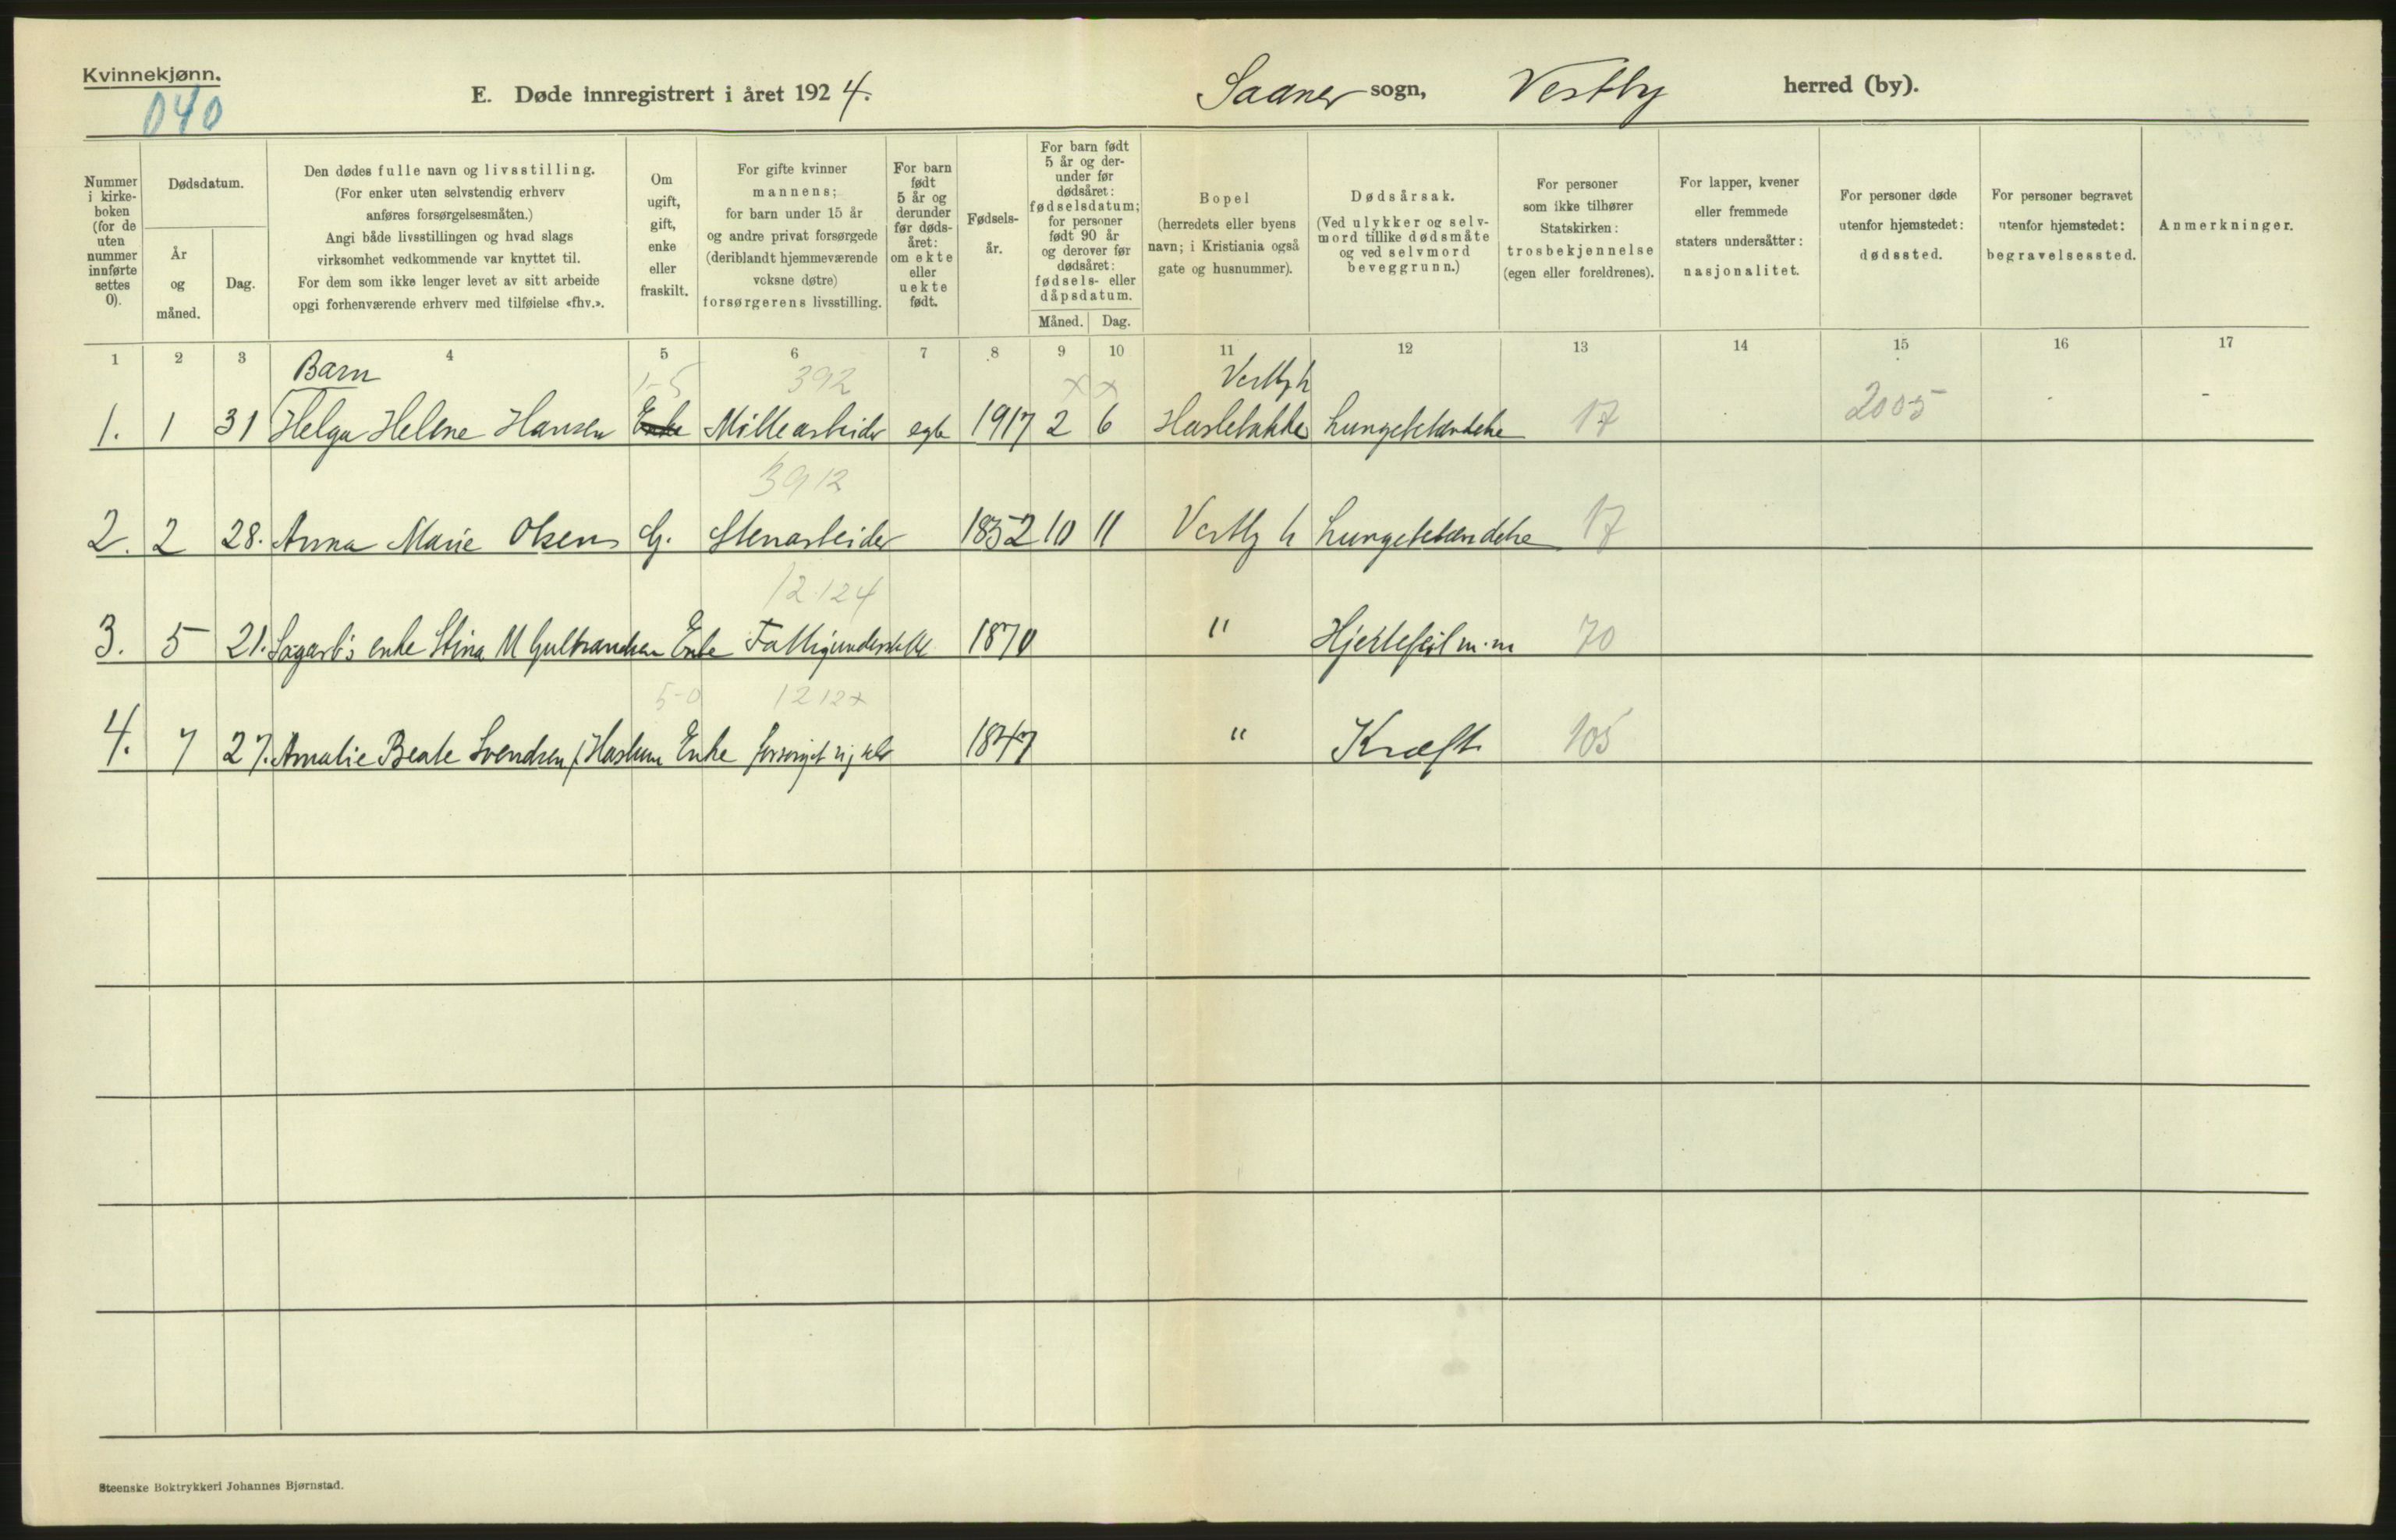 Kvinnekjønn.
040
E. Døde innregistrert i året 1924.
Saaner sogn, Vestby herred (by).
Nummer i kirkeboken (for de uten nummer innførte settes 0).
Dødsdatum.
År og måned.
Dag.
Den dødes fulle navn og livsstilling.
(For enker uten selvstendig erhverv
anføres forsørgelsesmåten.)
Angi både livsstillingen og hvad slags
virksomhet vedkommende var knyttet til.
For dem som ikke lenger levet av sitt arbeide
opgi forhenværende erhverv med tilføielse «fhv.».
Om ugift, gift, enke eller fraskilt.
For gifte kvinner
mannens;
for barn under 15 år
og andre privat forsørgede
(deriblandt hjemmeværende
voksne døtre)
forsørgerens livsstilling.
For barn født 5 år og derunder før dødsåret: om ekte eller uekte født.
Fødselsår.
For barn født 5 år og derunder før dødsåret: fødselsdatum; for personer født 90 år og derover før dødsåret: fødsels- eller dåpsdatum.
Måned. Dag.
Bopel
(herredets eller byens
navn; i Kristiania også
gate og husnummer).
Dødsårsak.
(Ved ulykker og selvmord tillike dødsmåte
og ved selvmord
beveggrunn.)
For personer
som ikke tilhører
Statskirken:
trosbekjennelse
(egen eller foreldrenes).
For lapper, kvener
eller fremmede
staters undersåtter:
nasjonalitet.
For personer døde
utenfor hjemstedet:
dødssted.
For personer begravet
utenfor hjemstedet:
begravelsessted.
Anmerkninger.
1 2 3 4 5 6 7 8 9 10 11 12 13 14 15 16 17
Barn 1-5 392 x x Vestby h
1. 1 31 Helga Helene Hansen Enke Millearbeider egte 1917 2 6 Haslebakke Lungebetændelse 17 2005
3912
2. 2 28. Anna Marie Olsen G. Stenarbeider 1852 10 11 Vestby h Lungebetændelse 17
12124
3. 5 21. Sagarb's enke Stina M Gulbrandsen Enke Fattigunderstøttet 1870 " Hjertefeil m.m 70
5-0 1212x
4. 7 27. Amalie Beate Svendsen Enke forsørget sig selv 1847 " Kræft 105
Steenske Boktrykkeri Johannes Bjørnstad.